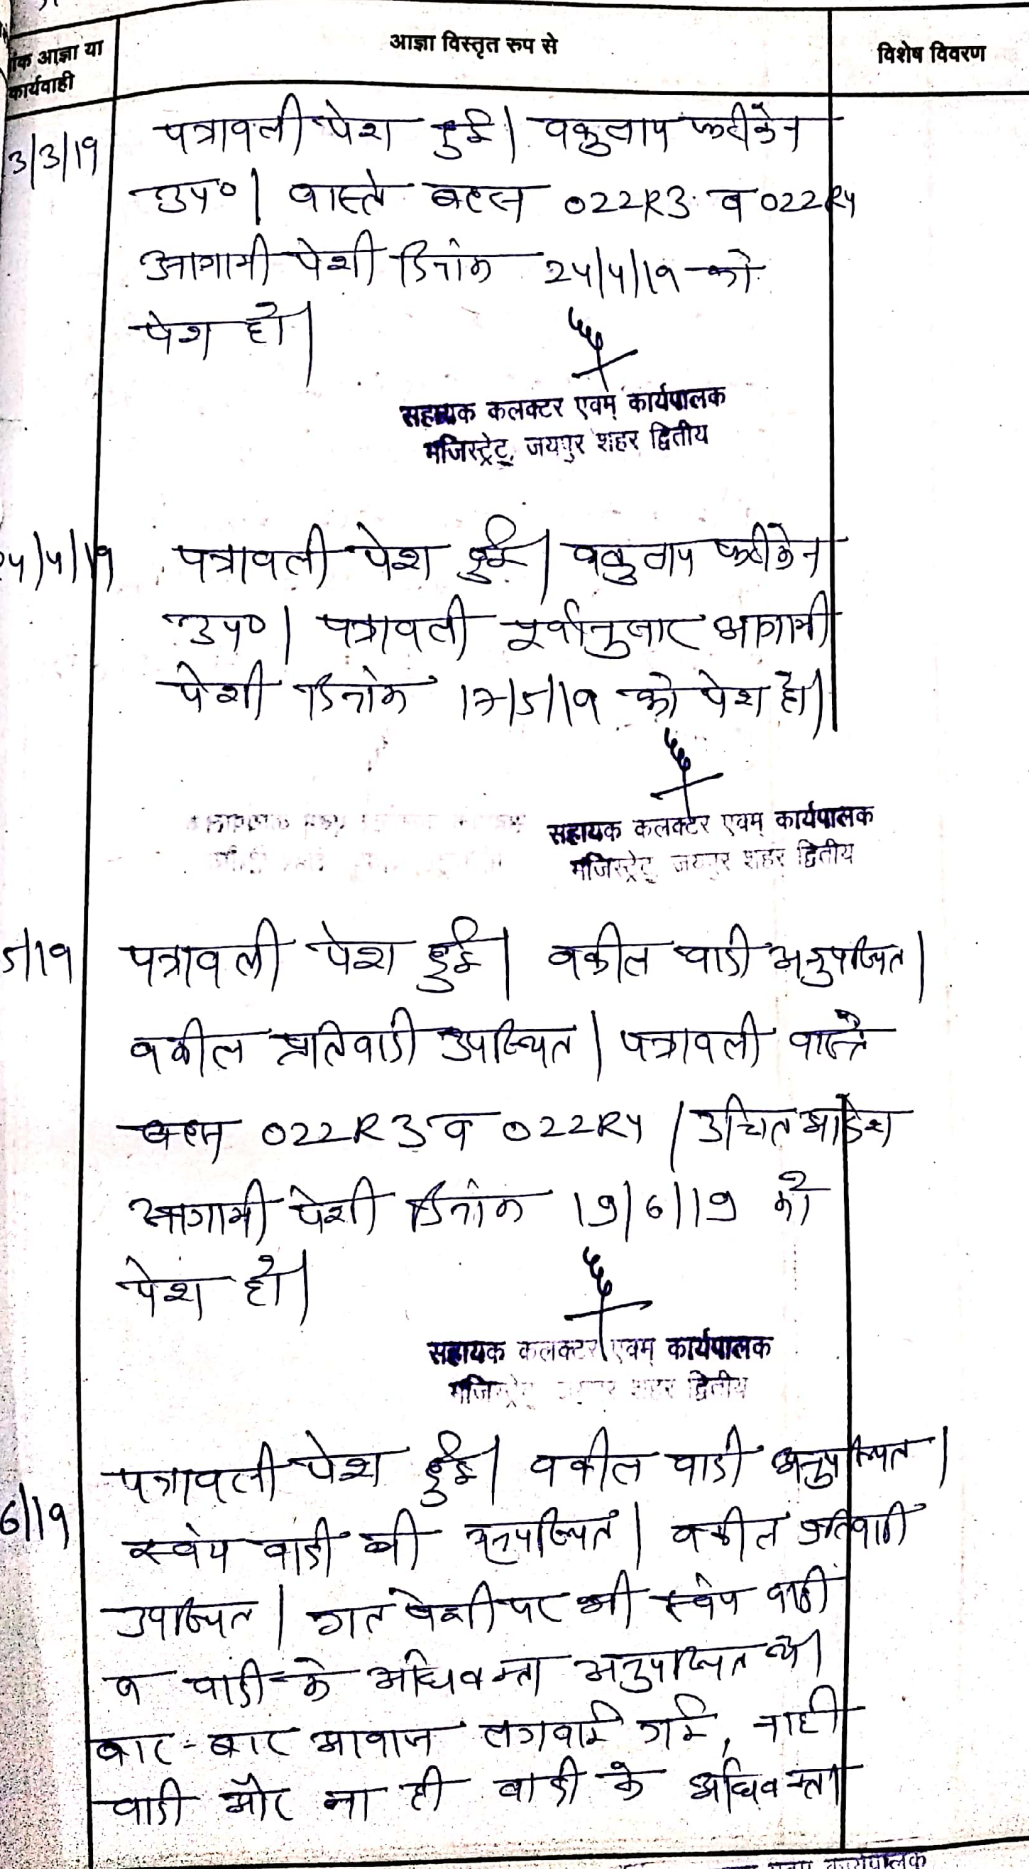 आज्ञा विस्तृत रुप से
विशेष विवरण
आज्ञा या
कार्यवाही
3/3/19
पत्रावली पेश हुई। वकुलाय फरीकेन
उप०। वास्ते बहस O22R3 व O22R4
आगामी पेशी दिनांक 24/4/19 को
पेश हो।
सहायक कलक्टर एवम् कार्यपालक
मजिस्ट्रेट, जयपुर शहर द्वितीय
24/4/19
पत्रावली पेश हुई। वकुलाय फरीकेन
उप०। पत्रावली पूर्वानुसार आगामी
पेशी दिनांक 17/5/19 को पेश हो।
सहायक कलक्टर एवम् कार्यपालक
मजिस्ट्रेट, जयपुर शहर द्वितीय
5/19
पत्रावली पेश हुई। वकील वादी अनुपस्थित।
वकील प्रतिवादी उपस्थित। पत्रावली वास्ते
बहस O22R3 व O22R4 / उचित आदेश
आगामी पेशी दिनांक 19/6/19 को
पेश हो।
सहायक कलक्टर एवम् कार्यपालक
मजिस्ट्रेट, जयपुर शहर द्वितीय
6/19
पत्रावली पेश हुई। वकील वादी अनुपस्थित।
स्वंय वादी भी अनुपस्थित। वकील प्रतिवादी
उपस्थित। गत पेशी पर भी स्वंय वादी
व वादी के अधिवक्ता अनुपस्थित थे।
बार-बार आवाज लगवाई गई, नाही
वादी और ना ही वादी के अधिवक्ता
कार्यपालक